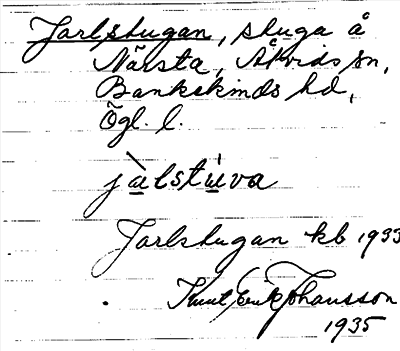 Jarlstugan, stuga å
Närsta, Åtvids sn,
Bankekinds hd,
Ögl. l.
jɯ̀lstɯ́va
Jarlstugan kb 1933
Knut Erik Johansson
1935